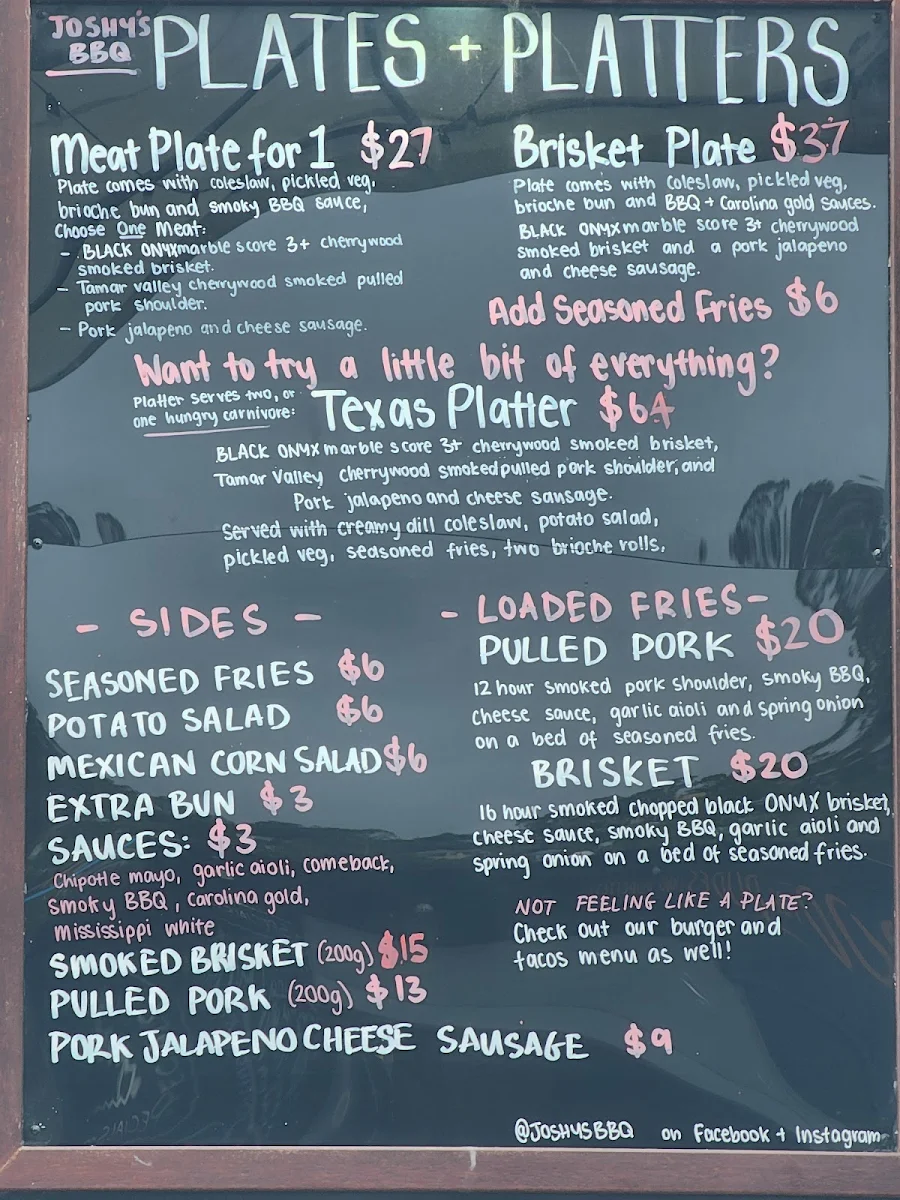 JOSHY'S
BBQ
PLATES + PLATTERS
Meat Plate for 1 $27
Plate comes with coleslaw, pickled veg,
brioche bun and smoky BBQ sauce,
Choose One Meat:
- BLACK ONYX marble score 3+ cherrywood
smoked brisket.
- Tamar valley cherrywood smoked pulled
pork shoulder.
- Pork jalapeno and cheese sausage.
Brisket Plate $37
Plate comes with Coleslaw, pickled veg,
brioche bun and BBQ + Carolina gold sauces.
BLACK ONYX marble score 3+ cherrywood
smoked brisket and a pork jalapeno
and cheese sausage.
Add Seasoned Fries $6
Want to try a little bit of everything?
Platter serves two, or
one hungry carnivore:
Texas Platter $64
BLACK ONYX marble score 3+ cherrywood smoked brisket,
Tamar Valley cherrywood smoked pulled pork shoulder, and
Pork jalapeno and cheese sausage.
Served with creamy dill coleslaw, potato salad,
pickled veg, seasoned fries, two brioche rolls.
- SIDES -
SEASONED FRIES $6
POTATO SALAD $6
MEXICAN CORN SALAD $6
EXTRA BUN $3
SAUCES: $3
Chipotle mayo, garlic aioli, comeback,
smoky BBQ, Carolina gold,
mississippi white
SMOKED BRISKET (200g) $15
PULLED PORK (200g) $13
PORK JALAPENO CHEESE SAUSAGE $9
- LOADED FRIES -
PULLED PORK $20
12 hour smoked pork shoulder, smoky BBQ,
cheese sauce, garlic aioli and spring onion
on a bed of seasoned fries.
BRISKET $20
16 hour smoked chopped black ONYX brisket,
cheese sauce, smoky BBQ, garlic aioli and
spring onion on a bed of seasoned fries.
NOT FEELING LIKE A PLATE?
Check out our burger and
tacos menu as well!
@JOSHYSBBQ on Facebook + Instagram